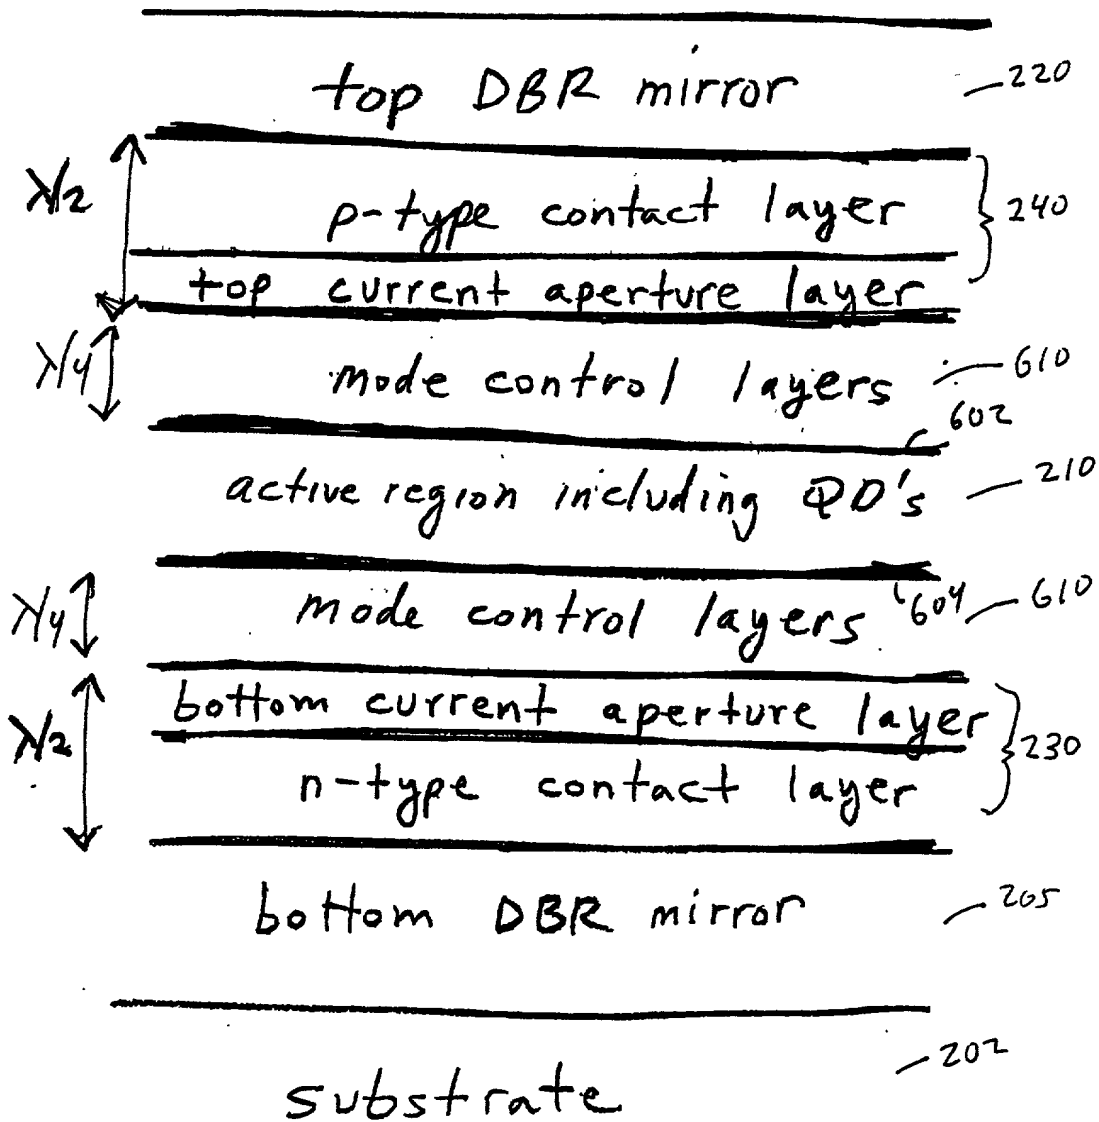 top DBR mirror 220
λ/2
p-type contact layer 240
top current aperture layer
λ/4
mode control layers 610
602
active region including QD's 210
λ/4
mode control layers 604 610
bottom current aperture layer
λ/2
230
n-type contact layer
bottom DBR mirror 205
202
substrate